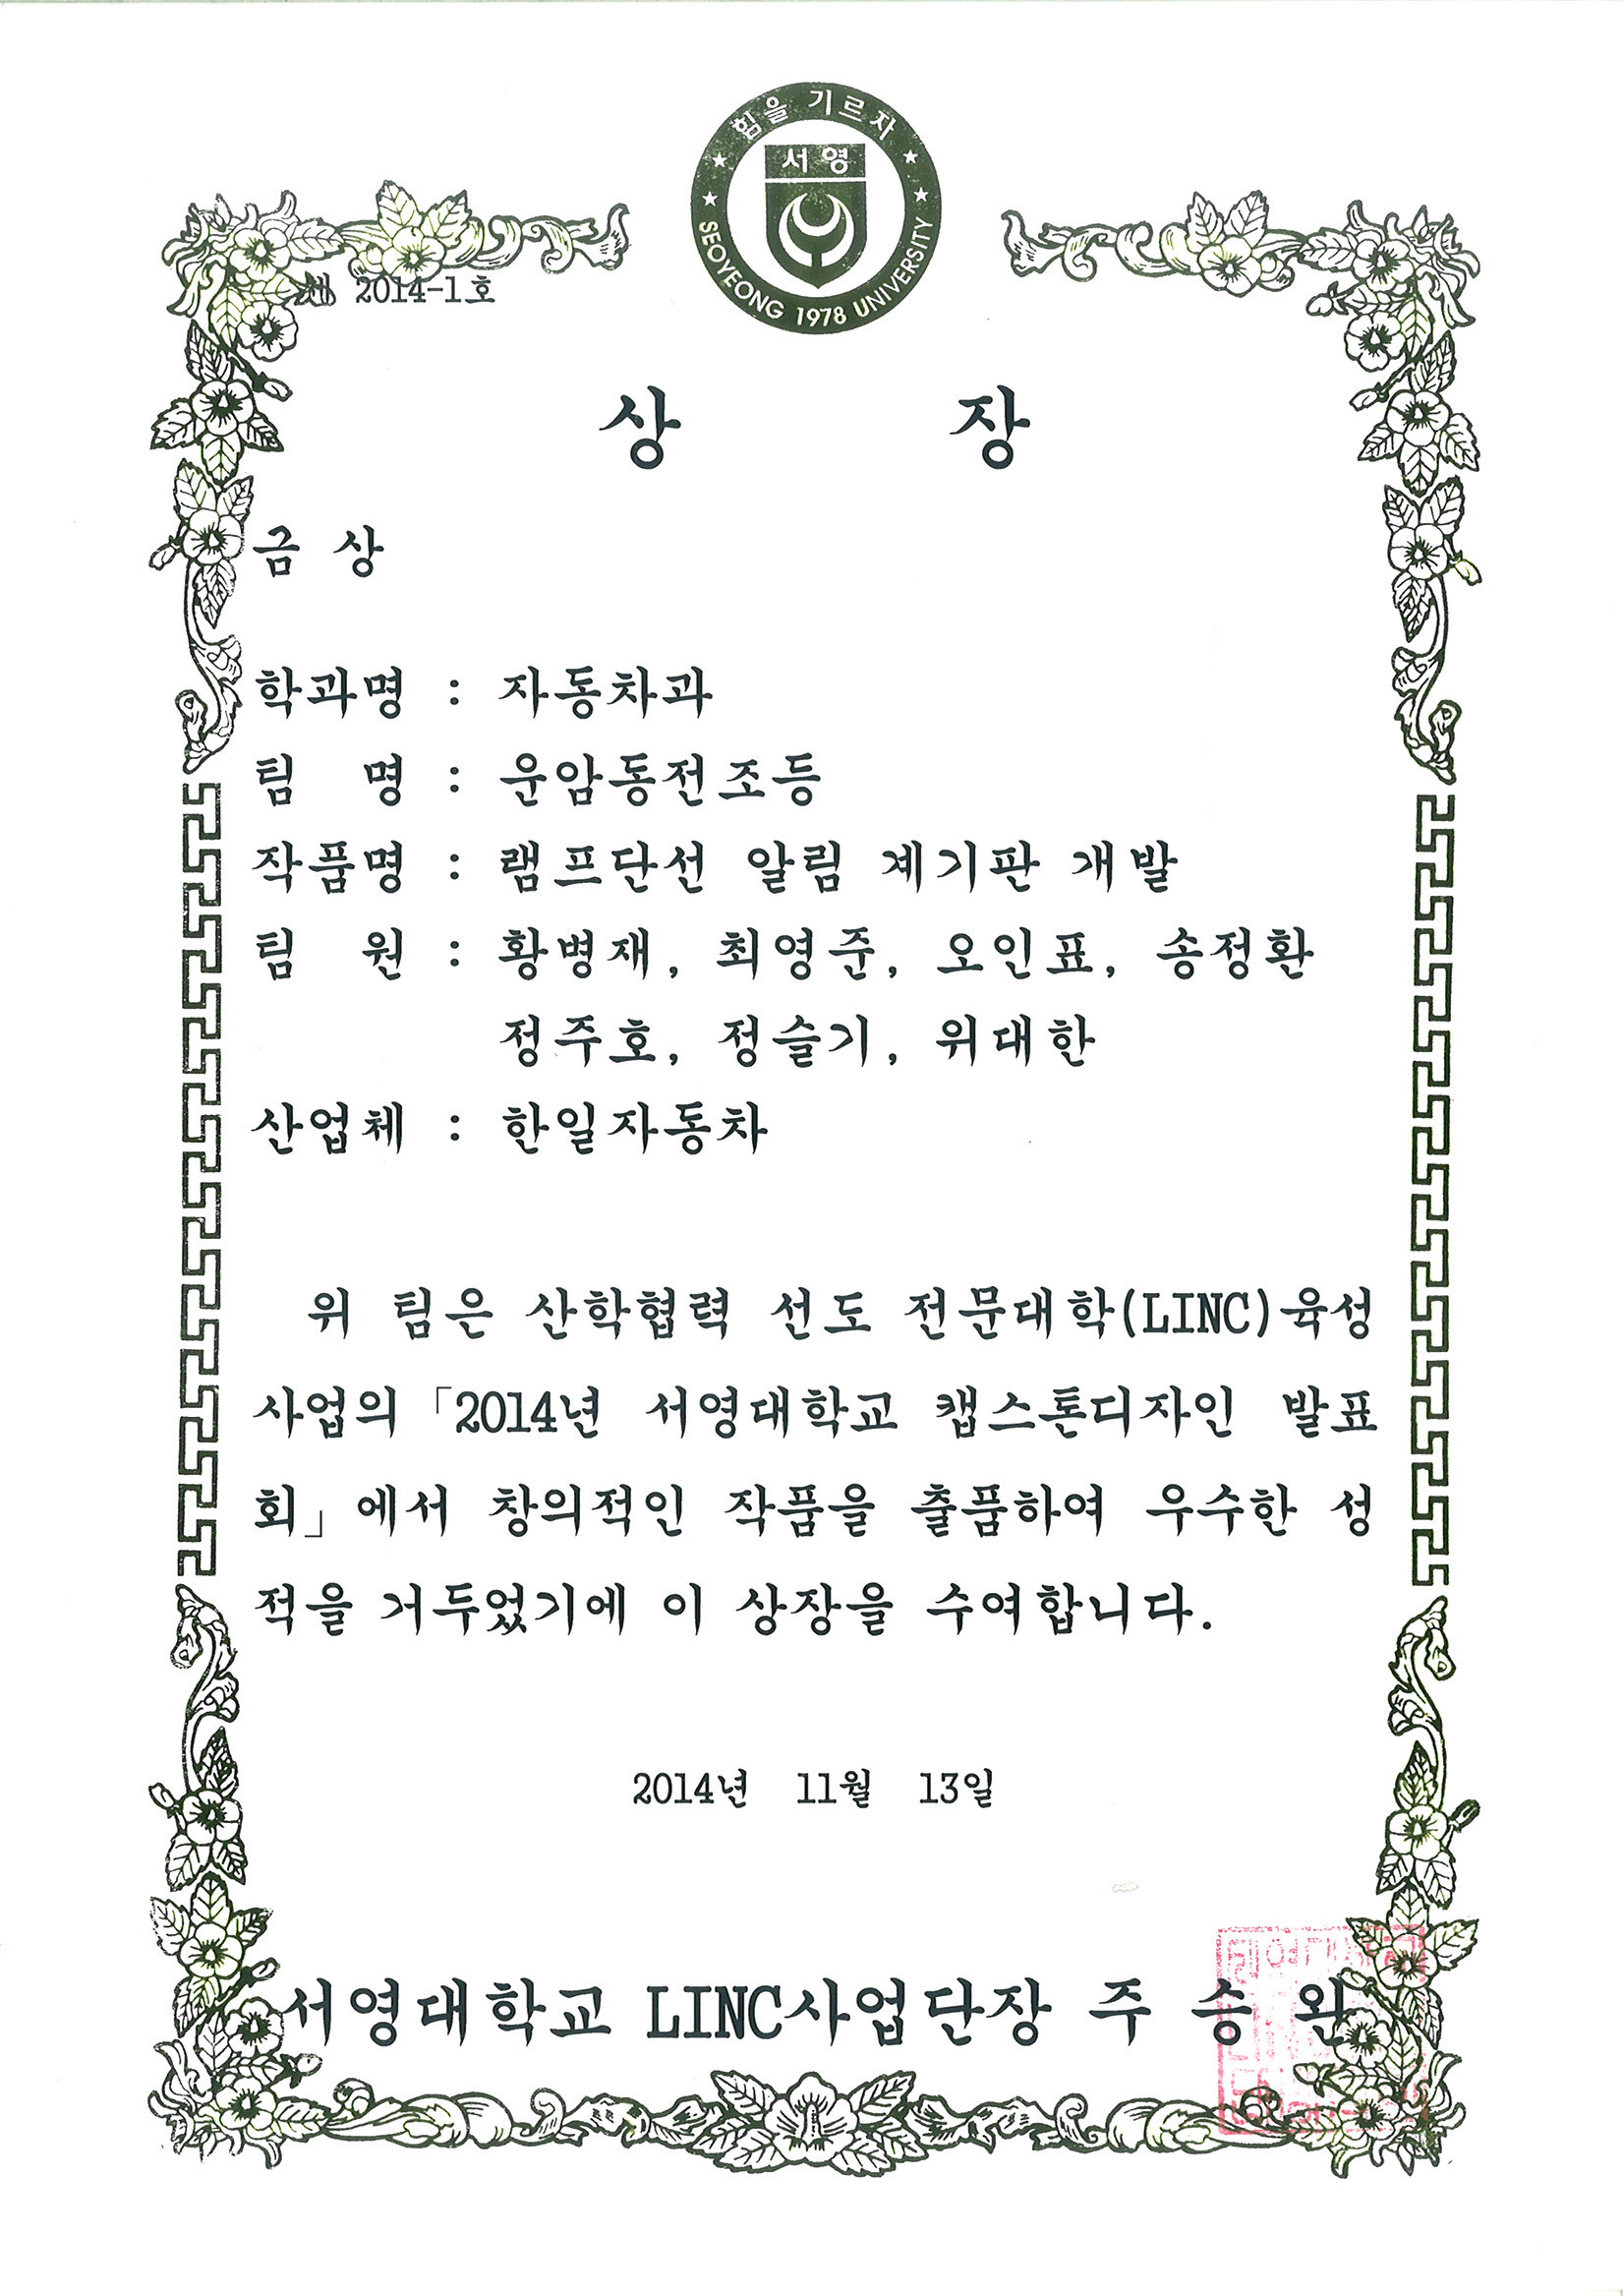 힘을 기르자
서영
SEOYEONG 1978 UNIVERSITY
제 2014-1호
상 장
금 상
학과명 : 자동차과
팀 명 : 운암동전조등
작품명 : 램프단선 알림 계기판 개발
팀 원 : 황병재, 최영준, 오인표, 송정환
정주호, 정슬기, 위대한
산업체 : 한일자동차
위 팀은 산학협력 선도 전문대학(LINC)육성
사업의 「2014년 서영대학교 캡스톤디자인 발표
회」에서 창의적인 작품을 출품하여 우수한 성
적을 거두었기에 이 상장을 수여합니다.
2014년 11월 13일
서영대학교 LINC사업단장 주 승 완